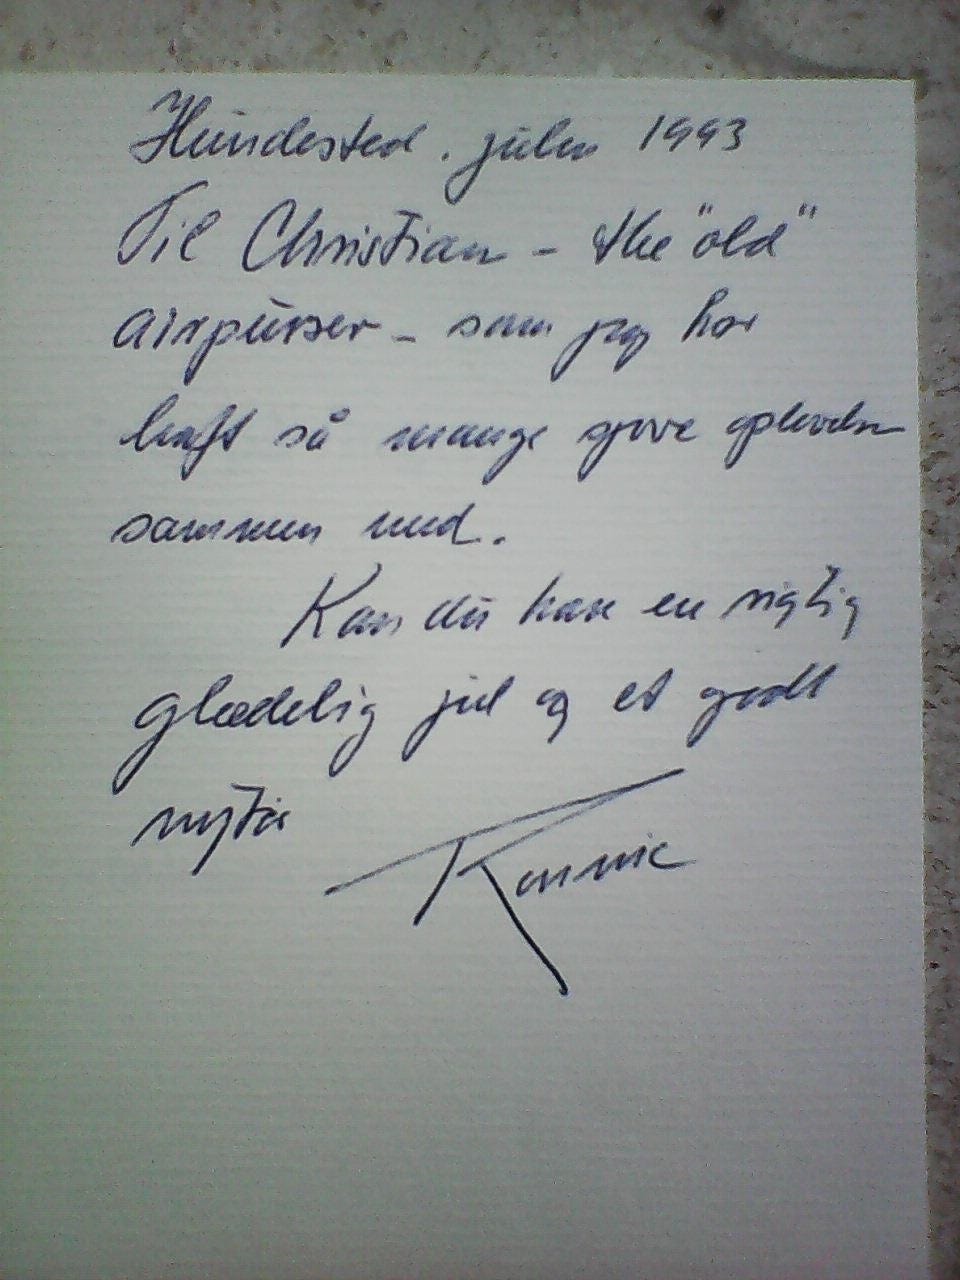 Hundested. julen 1993
Til Christian - the "old"
airpurser - som jeg har
haft så mange sjove oplevelser
sammen med.
Kan du have en rigtig
glædelig jul og et godt
nytår
Ronnie